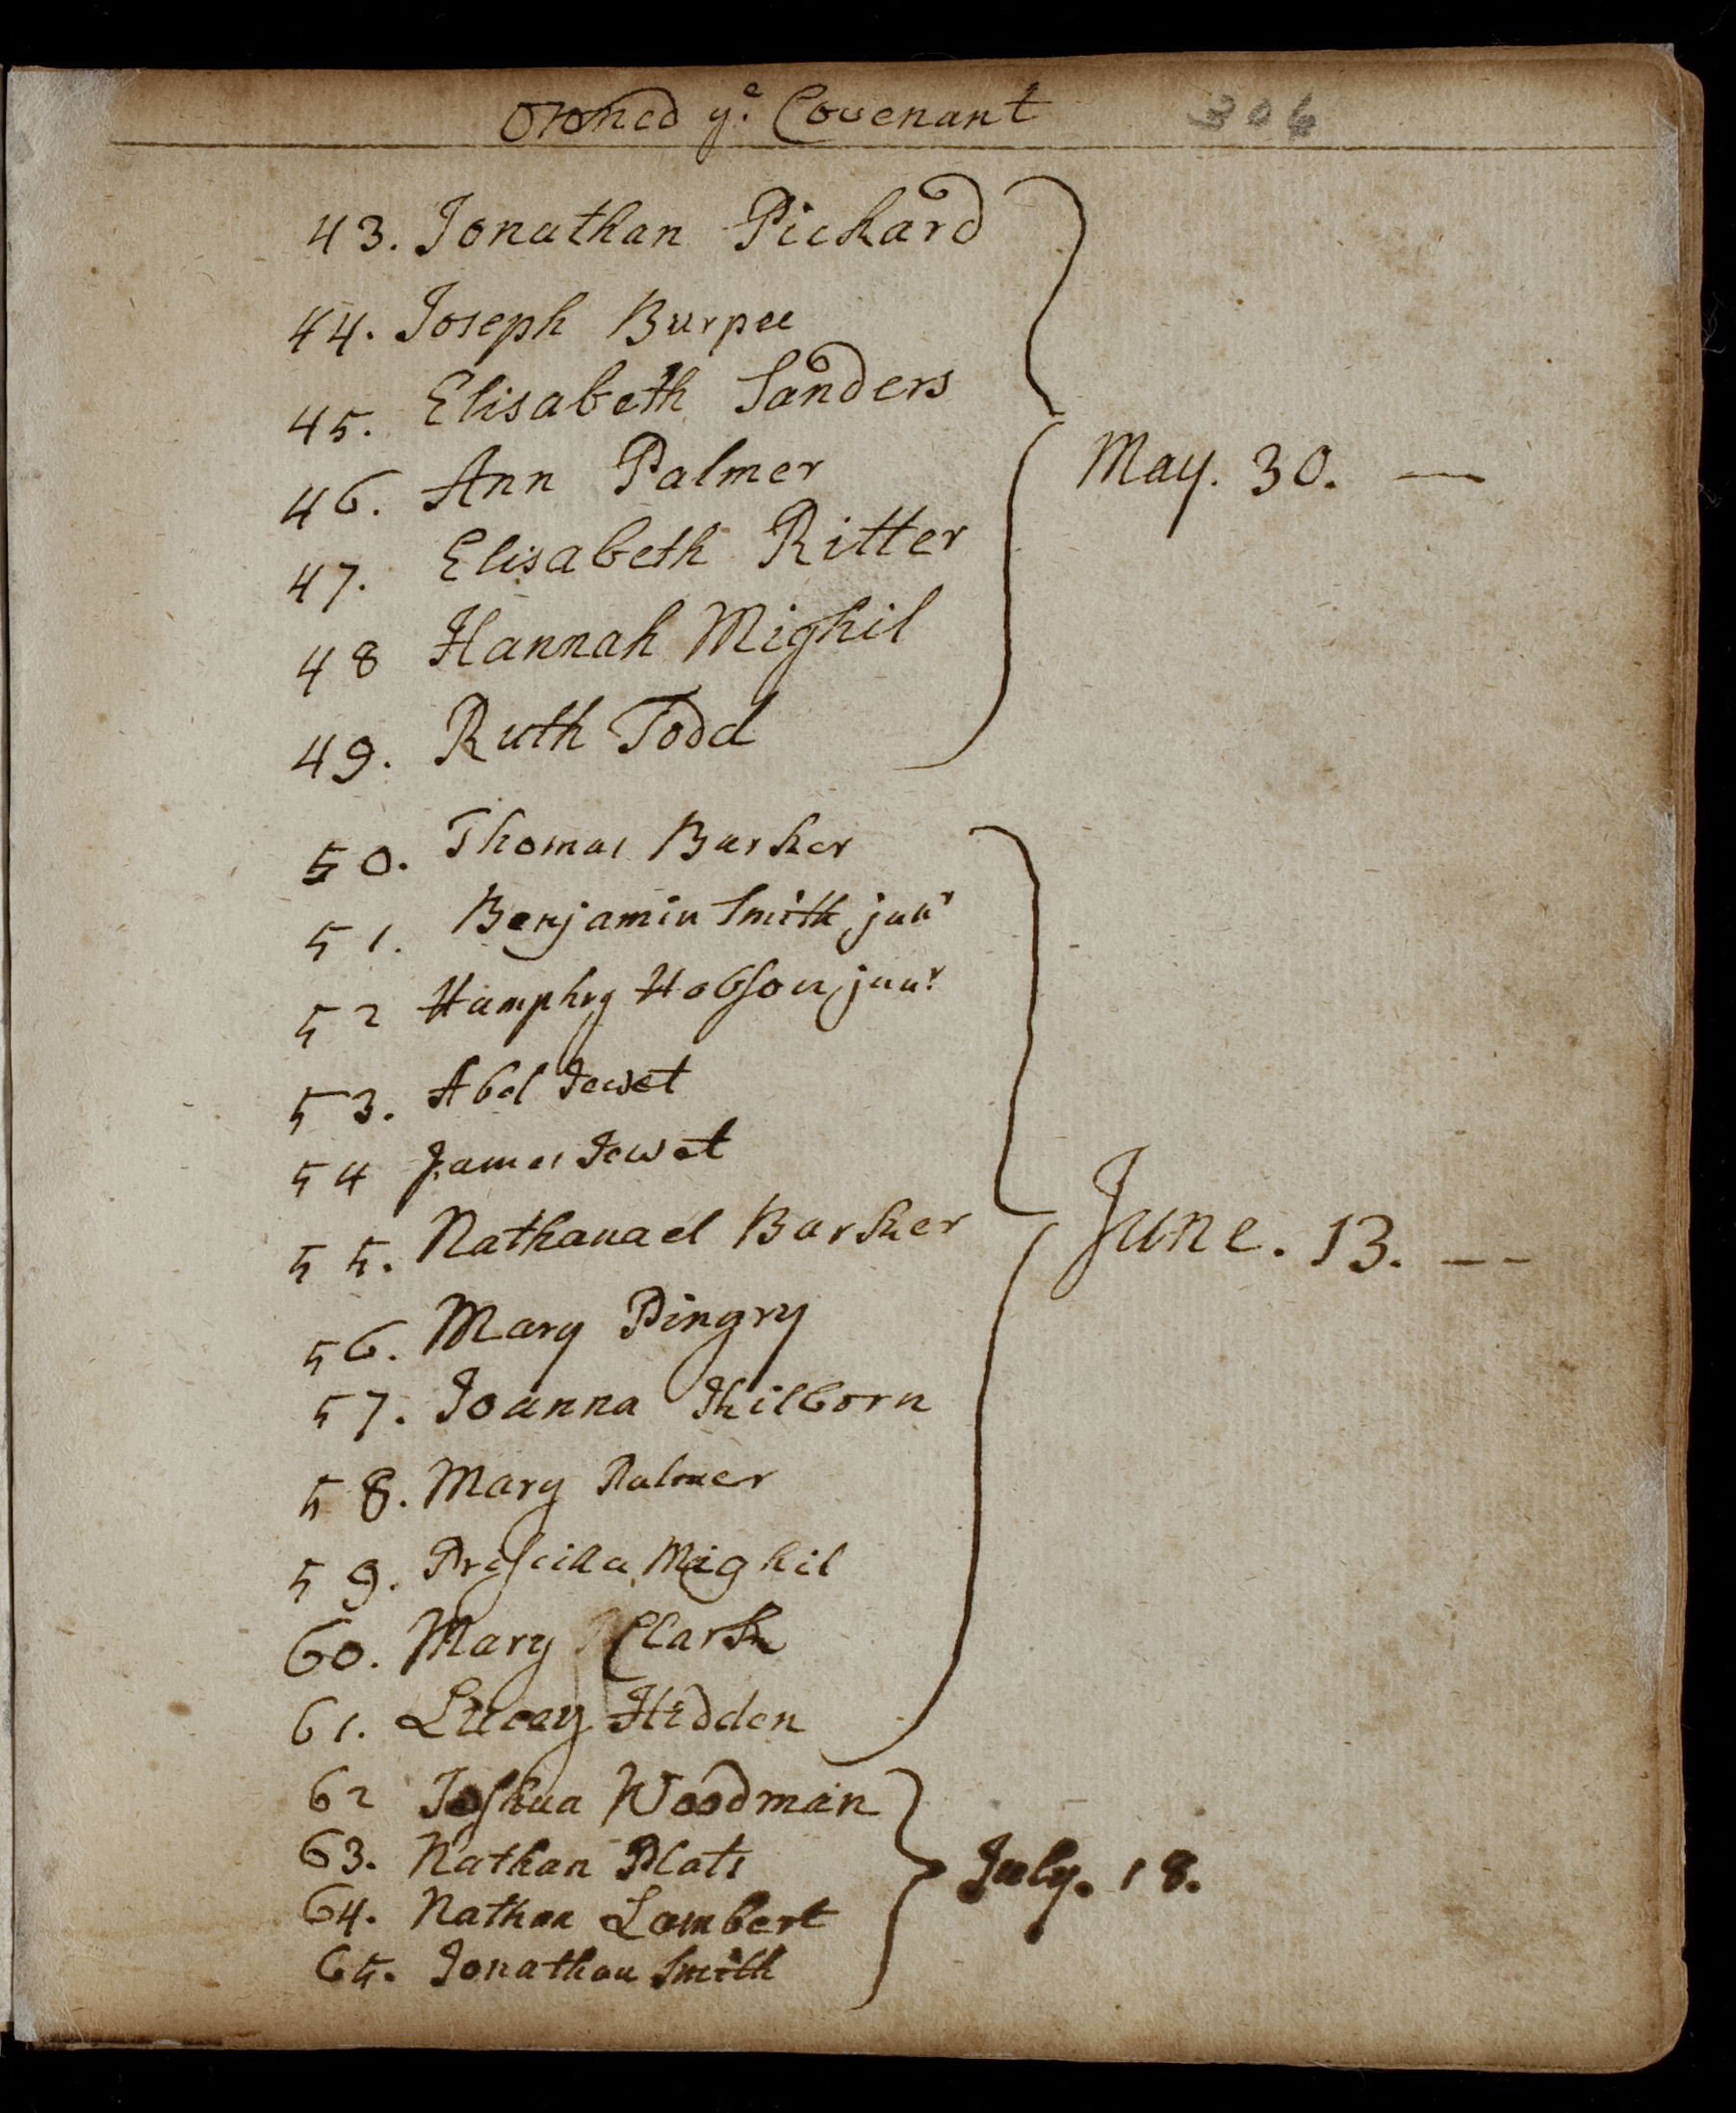 Owned yͤ. Covenant 306
43. Jonathan Pickard
44. Joseph Burpee
45. Elisabeth Sanders
46. Ann Palmer
May. 30. —
47. Elisabeth Ritter
48 Hannah Mighil
49. Ruth Todd
50. Thomas Barker
51. Benjamin Smith, junʳ
52 Humphry Hobson, junʳ.
53. Abel Jewet
54 James Jewet
55. Nathanael Barker
June. 13. — —
56. Mary Pingry
57. Joanna Kilborn
58. Mary Palmer
59. Priscilla Mighil
60. Mary Clark
61. Lucey Hidden
62 Joshua Woodman
63. Nathan Plats
July. 18.
64. Nathan Lambert
65. Jonathan Smith